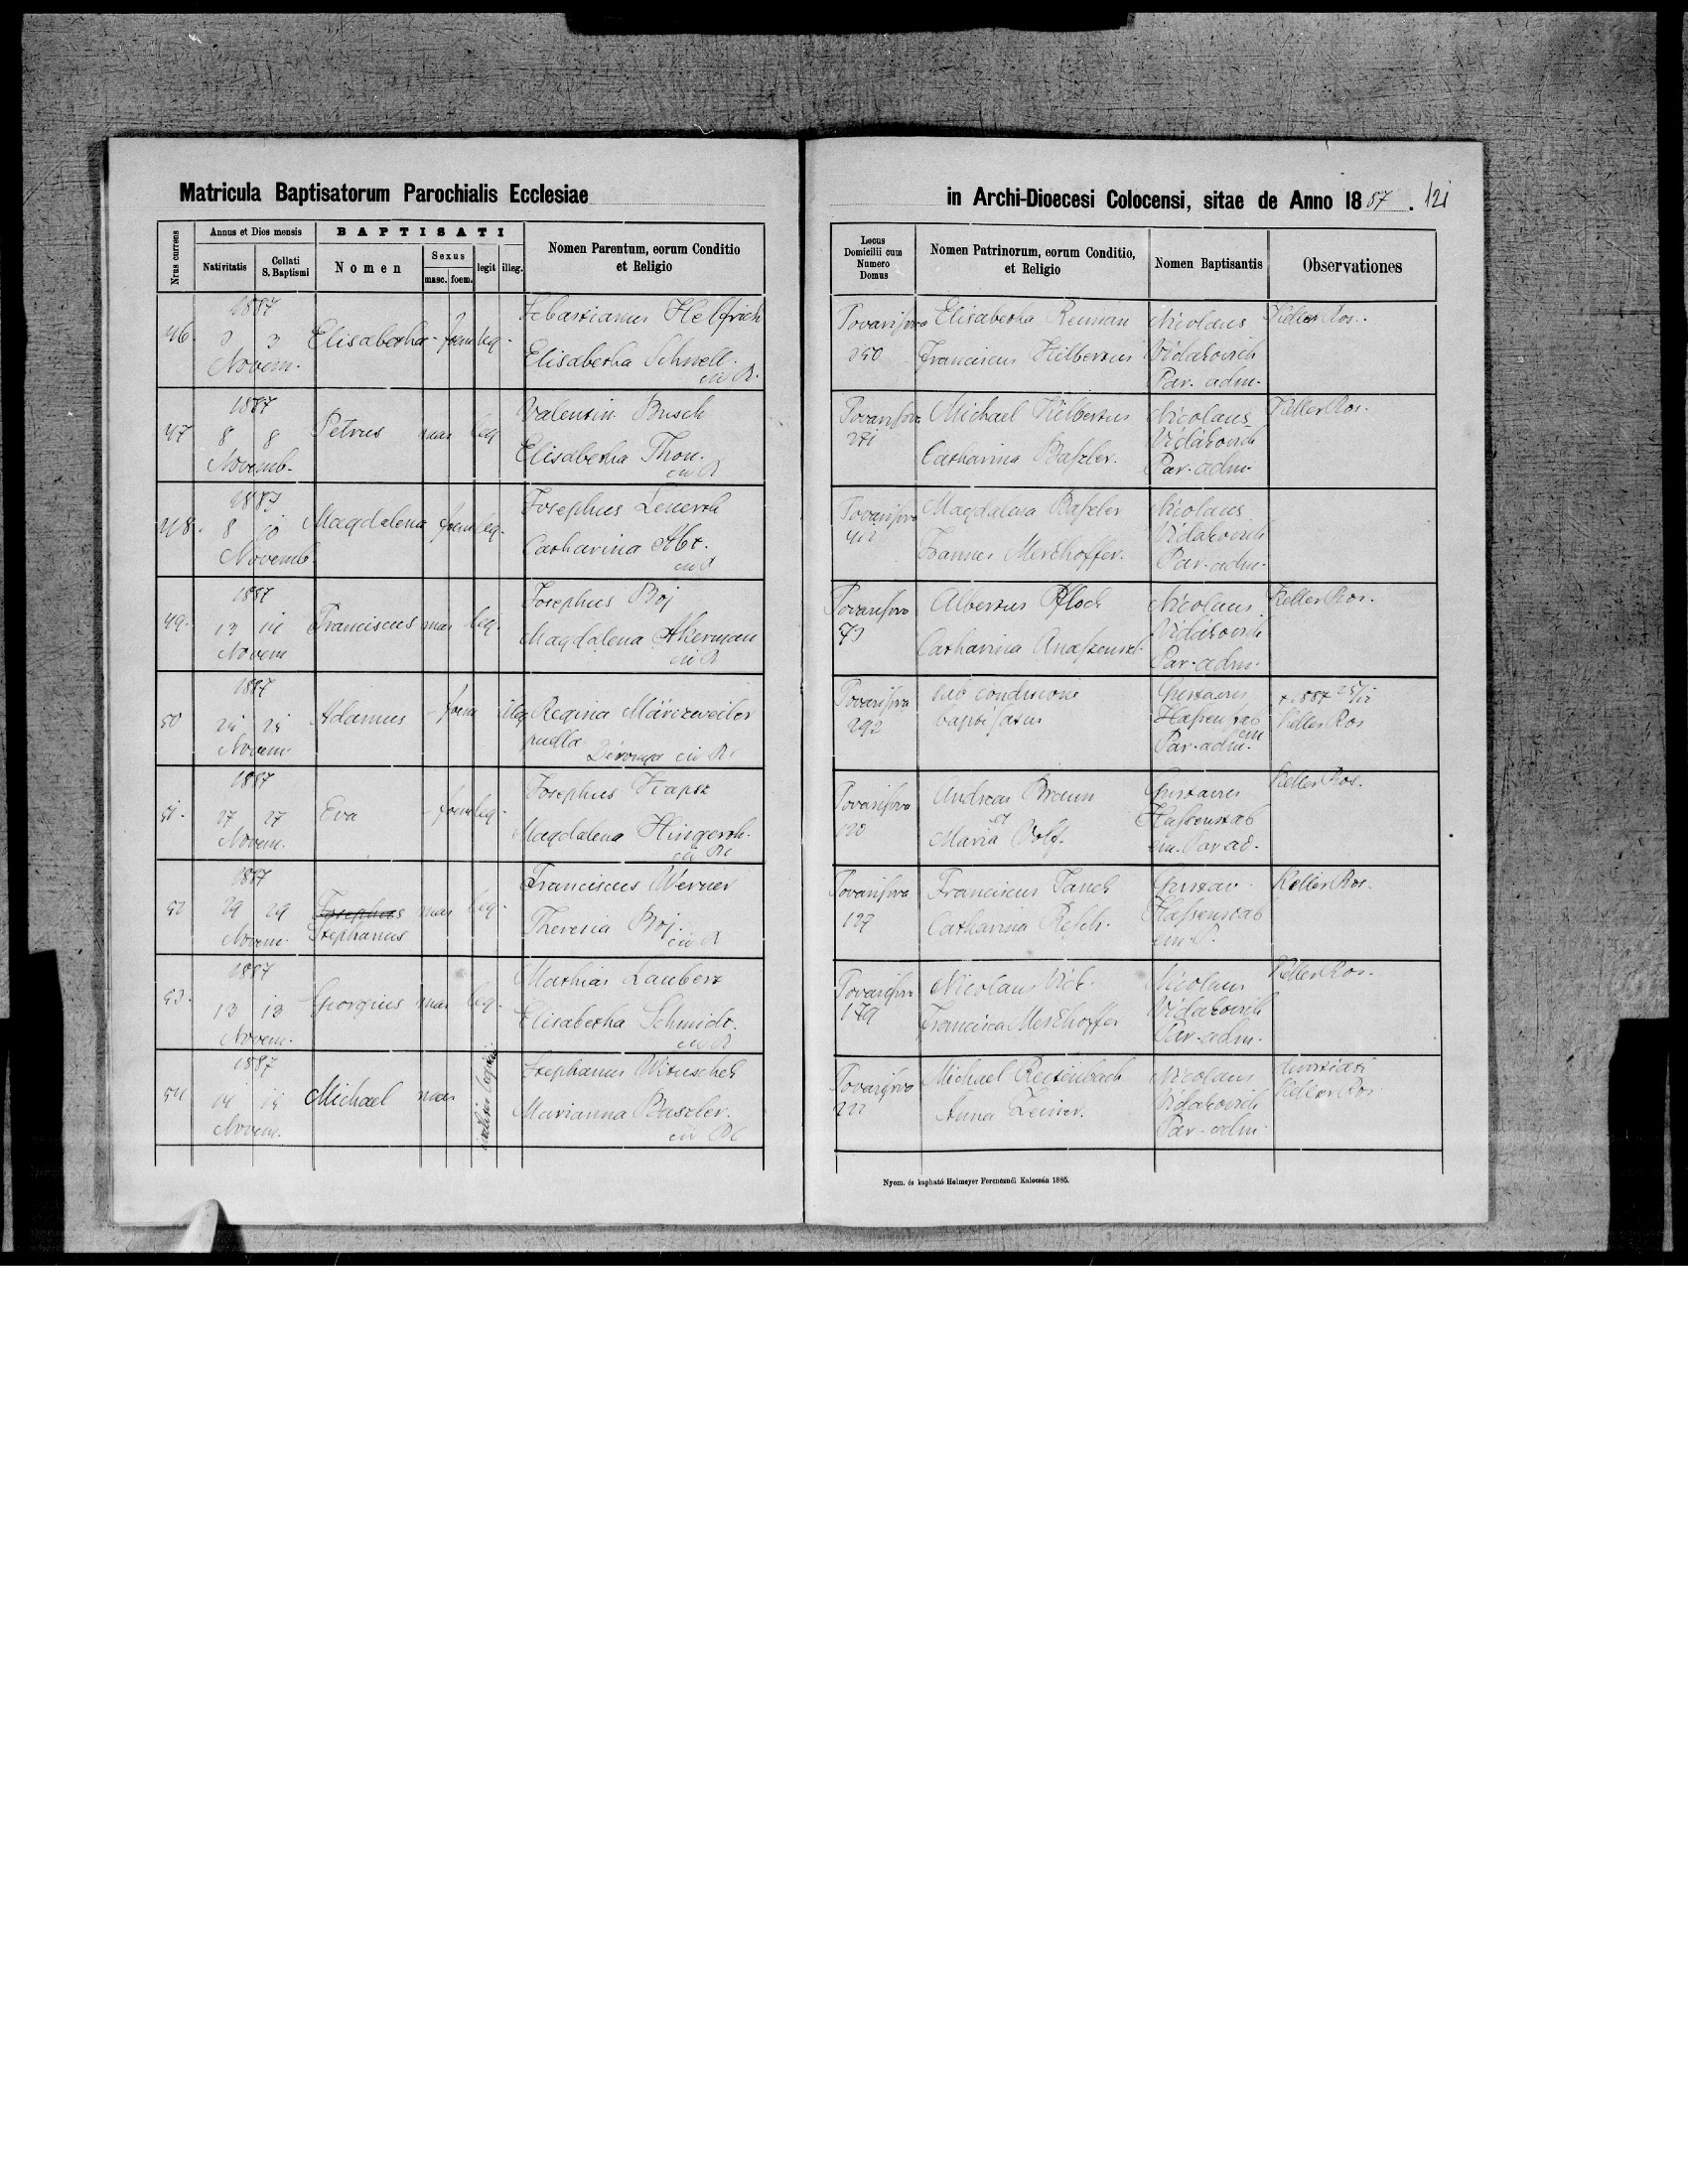 Matricula Baptisatorum Parochialis Ecclesiae
in Archi-Dioecesi Colocensi, sitae de Anno 1887. 121
Nrus currens
Annus et Dies mensis
Nativitatis
Collati S. Baptismi
BAPTISATI
Nomen
Sexus
masc. foem.
legit illeg.
Nomen Parentum, eorum Conditio
et Religio
Locus
Domicilii cum
Numero
Domus
Nomen Patrinorum, eorum Conditio,
et Religio
Nomen Baptisantis
Observationes
46. 1887
3 3
Novem.
Elisabetha - foem leg.
Sebastianus Helfrich
Elisabetha Schnell.
Tovarisova
250
Elisabetha Reiman
Franciscus Hilbertus
Nicolaus
Vidakovich
Par. adm.
Keller Ros.
47 1887
8 8
Novemb.
Petrus mas leg
Valentin Busch
Elisabetha Thon.
Michael Hilbertus
Catharina Baszler.
Nicolaus
Vidákovich
Par. adm.
Keller Ros.
48. 1887
8 10
Novemb
Magdalena foem leg.
Josephus
Catharina Abt.
Magdalena Baszler
Joannes Merkhoffer.
Nicolaus
Vidakovich
Par. adm.
49. 1887
13 14
Novem
Franciscus mas leg.
Josephus Boj
Magdalena Akerman
73
Albertus Pfloch
Catharina
Nicolaus
Vidákovich
Par. adm.
Keller Ros.
50 1887
Novem.
Adamus - foem illeg
Regina Märczweiler
puella
292
sub conditione
baptisatus
Gustavus
Hassenstab
Par. adm.
Keller Ros
51. 1887
27 27
Novem.
Eva - foem leg.
Josephus
Magdalena Hingerth.
120
Andreas Braun
et
Maria Volf.
Gustavus
Hassenstab
em. Par ad.
Keller Ros.
52 1887
29 29
Novem.
Josephus
Stephanus
mas leg.
Franciscus Werner
Theresia Boj.
127
Franciscus Janch
Catharina Resch.
Gustav.
Hassenstab
Keller Ros.
53. 1887
13 13
Novem.
Georgius mas leg.
Mathias Laubert
Elisabetha Schmidt.
179
Nicolaus
Francisca Merkhoffer
Nicolaus
Vidakovich
Par. adm.
Keller Ros.
54 1887
14 15
Novem.
Michael mas
Stephanus Wituschek
Marianna Baszler.
222
Michael Reitenbach
Anna Zeiner.
Nicolaus
Vidakovich
Par. adm.
Keller Ros
Nyom. és kapható Holmeyer Ferencznél Kalocsán 1885.